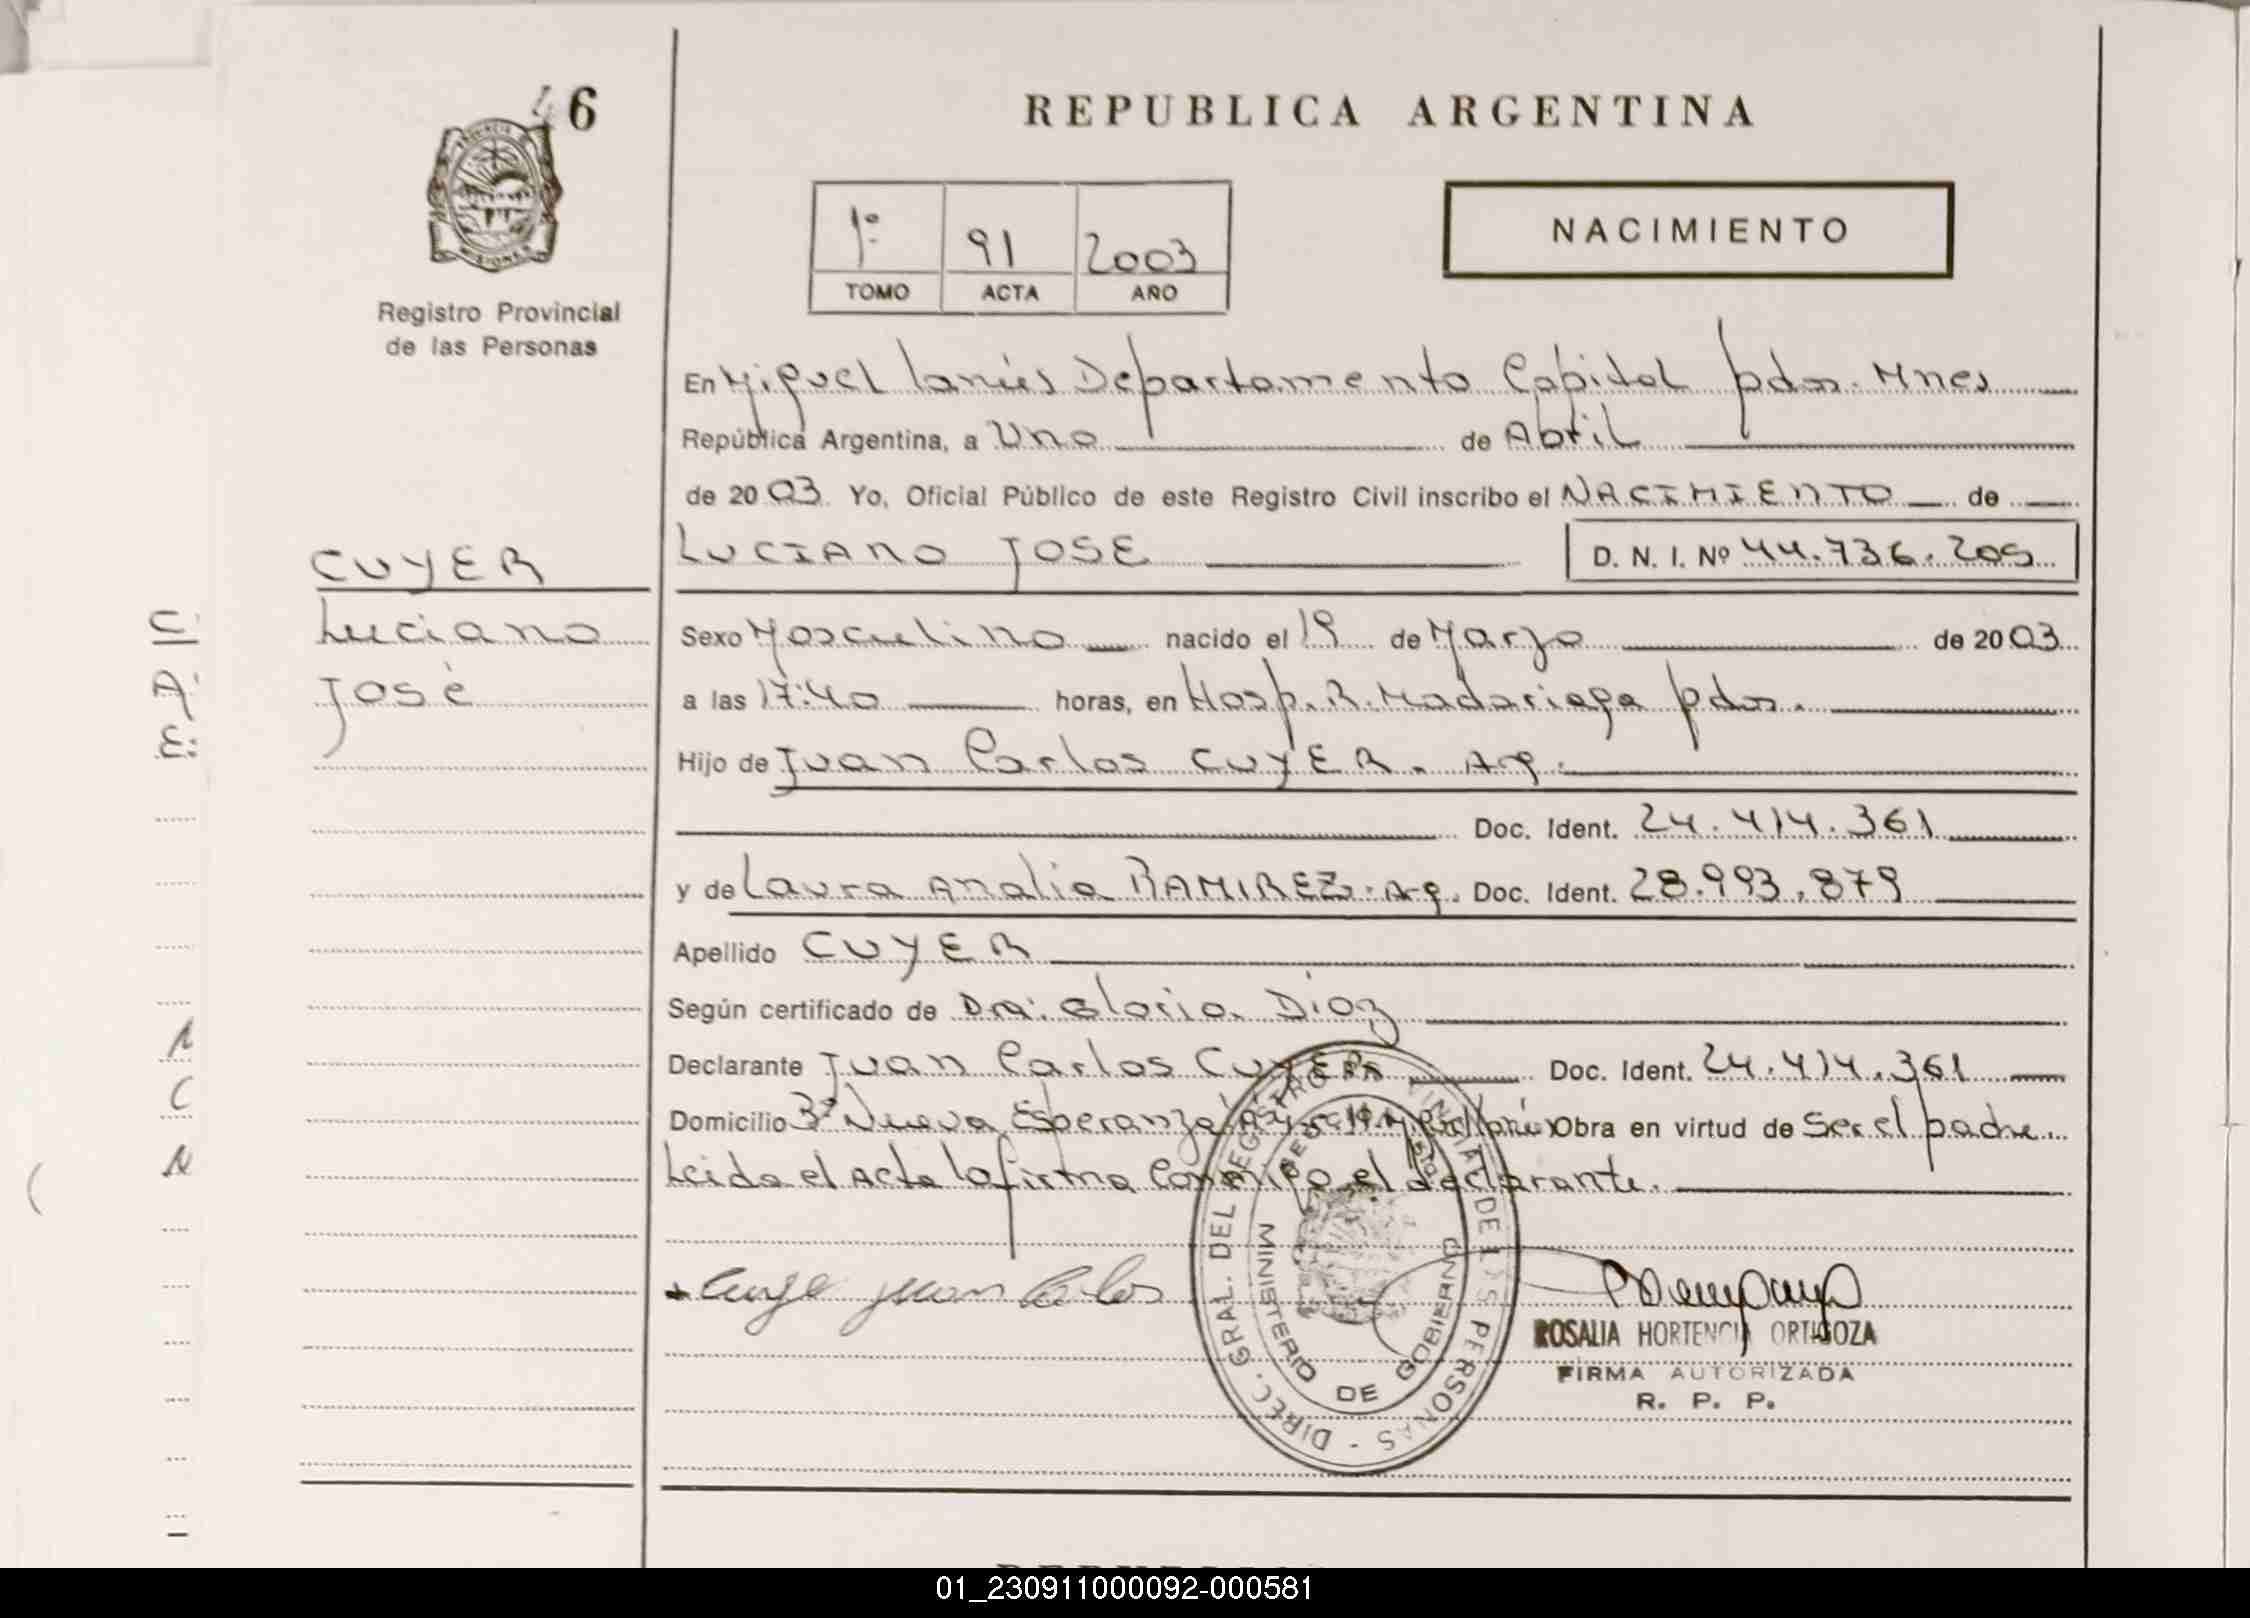 46
PROVINCIA DE
MISIONES
Registro Provincial
de las Personas
REPUBLICA ARGENTINA
1º 91 2003
TOMO ACTA AÑO
NACIMIENTO
En Miguel Lanús Departamento Capital pdas. Mnes
República Argentina, a Uno de Abril
de 2003 Yo, Oficial Público de este Registro Civil inscribo el NACIMIENTO de
LUCIANO JOSE D. N. I. Nº 44.736.205
CUYER
Luciano
José
Sexo Masculino nacido el 19 de Marzo de 2003
a las 17:40 horas, en Hosp. R. Madariaga pdas.
Hijo de Juan Carlos CUYER. Arg.
Doc. Ident. 24.414.361
y de Laura Analia RAMIREZ. Arg. Doc. Ident. 28.993.879
Apellido CUYER
Según certificado de Dra. Gloria Diaz
Declarante Juan Carlos CUYER Doc. Ident. 24.414.361
Domicilio Bº Nueva Esperanza Obra en virtud de Ser el padre.
Leida el Acta la firma conmigo el declarante.
Cuye Juan Carlos
DIREC. GRAL. DEL REGISTRO PROVINCIAL DE LAS PERSONAS
MINISTERIO DE GOBIERNO
ROSALIA HORTENCIA ORTIGOZA
FIRMA AUTORIZADA
R. P. P.
C
A
E:
N
C
N
01_230911000092-000581